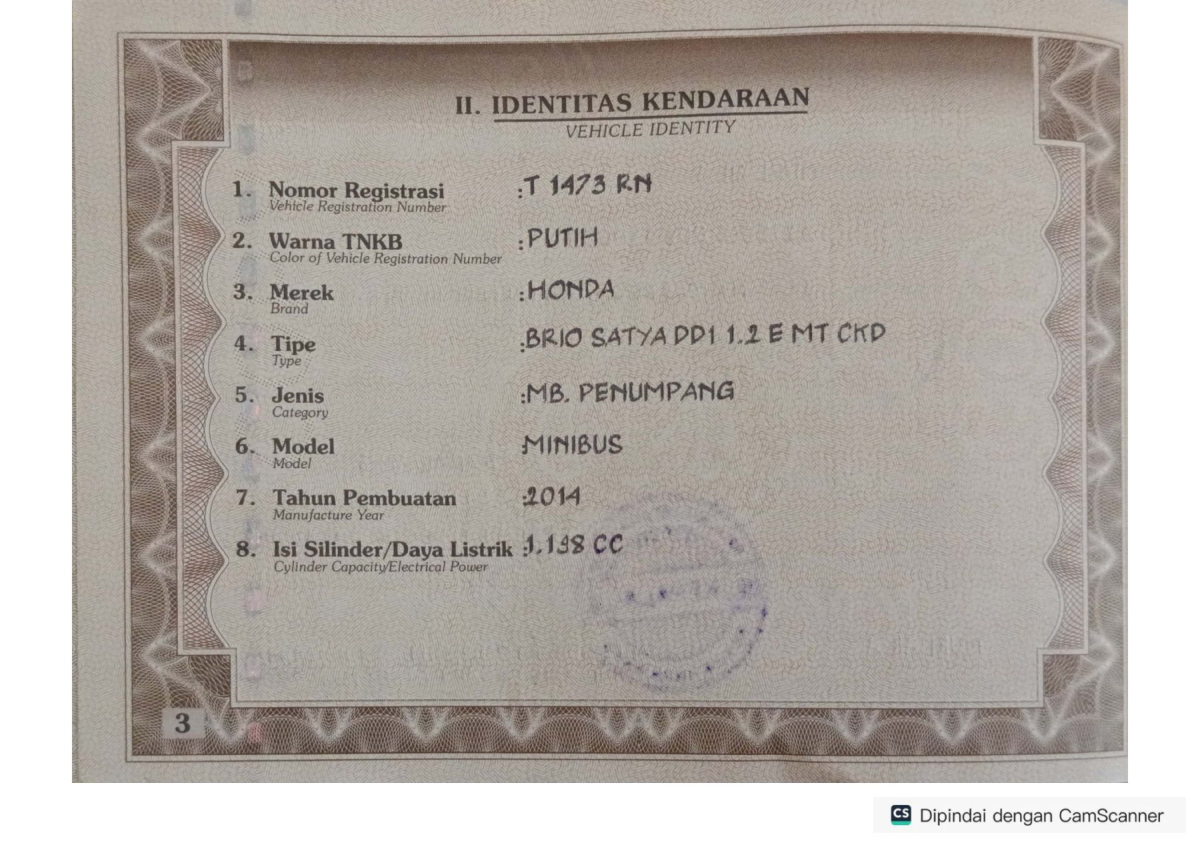 II. IDENTITAS KENDARAAN
VEHICLE IDENTITY
1. Nomor Registrasi :T 1473 RN
Vehicle Registration Number
2. Warna TNKB :PUTIH
Color of Vehicle Registration Number
3. Merek :HONDA
Brand
4. Tipe :BRIO SATYA DD1 1.2 E MT CKD
Type
5. Jenis :MB. PENUMPANG
Category
6. Model :MINIBUS
Model
7. Tahun Pembuatan :2014
Manufacture Year
8. Isi Silinder/Daya Listrik :1.198 CC
Cylinder Capacity/Electrical Power
3
CS Dipindai dengan CamScanner